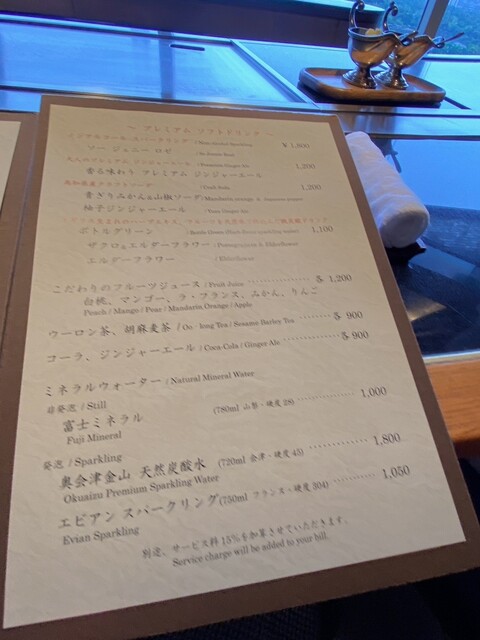 ～ プレミアム ソフトドリンク ～
ノンアルコール スパークリング / Non-Alcohol Sparkling
ソー ジェニー ロゼ / So Jennie Rosé ¥1,800
大人のプレミアム ジンジャーエール / Premium Ginger Ale
香る味わり プレミアム ジンジャーエール 1,200
高知県産クラフトソーダ / Craft Soda 1,200
青ぎりみかん&山椒ソーダ / Mandarin orange & Japanese pepper
柚子ジンジャーエール / Yuzu Ginger Ale
ボトルグリーン / Bottle Green 1,100
ザクロ&エルダーフラワー / Pomegranate & Elderflower
エルダーフラワー / Elderflower
こだわりのフルーツジュース / Fruit Juice ・・・・・・・・・・ 各 1,200
白桃、マンゴー、ラ・フランス、みかん、りんご
Peach / Mango / Pear / Mandarin Orange / Apple
ウーロン茶、胡麻麦茶 / Oo - long Tea / Sesame Barley Tea ・・・・・・・・ 各 900
コーラ、ジンジャーエール / Coca Cola / Ginger Ale ・・・・・・・・ 各 900
ミネラルウォーター / Natural Mineral Water
非発泡 / Still
富士ミネラル (780ml 山梨・硬度 28) ・・・・・・・・・ 1,000
Fuji Mineral
発泡 / Sparkling
奥会津金山 天然炭酸水 (720ml 会津・硬度 43) ・・・・・・・・・ 1,800
Okuaizu Premium Sparkling Water
エビアン スパークリング (750ml フランス・硬度 304) ・・・・・・・・ 1,050
Evian Sparkling
別途、サービス料 15%を加算させていただきます。
Service charge will be added to your bill.